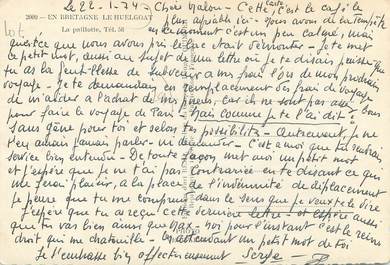 Le 22-1-74
2000 - EN BRETAGNE LE HUELGOAT
La paillotte, Tél. 56
Lot.
Chère Malou - Cette carte c'est le café le
plus agréable ici - Nous avons de la tempête
en ce moment c'est un peu calmé mais
qu'est ce que nous avons pris le lac était démonté - Je te met
ce petit mot, aussi au sujet de ma lettre où je te disais peut être
tu as la feuille de
voyage - Je te demandais en remplacement des frais de voyage
de m'aider à l'achat de mes pneus, car ils ne sont pas
pour faire le voyage de Paris - Mais comme je te l'ai dit
sans gêne pour toi et selon tes possibilités - Autrement, je ne
t'en aurais jamais parlé - ni demander - C'est à moi que tu rendrais
service bien entendu - De toute façon met moi un petit mot
et j'espère que je ne t'ai pas contrariée en te disant ce qui
me ferai plaisir, à la place de l'indemnité de déplacement
je pense que tu me comprend dans le sens que je veux te le dire
J'espère que tu as reçu cette dernière lettre - et espère aussi
que tu vas bien ainsi que - moi pour l'instant c'est le rein
droit qui me chatouille - En attendant un petit mot de toi
Je t'embrasse bien affectueusement Serge